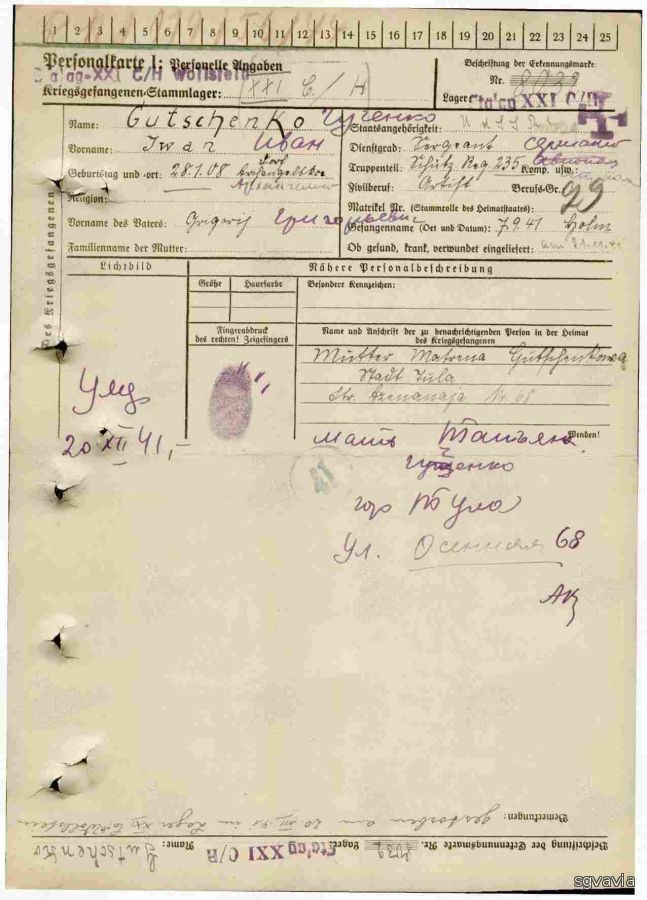 1 2 3 4 5 6 7 8 9 10 11 12 13 14 15 16 17 18 19 20 21 22 23 24 25
Personalkarte I: Personelle Angaben
Stalag-XXI C/H Wollstein
Kriegsgefangenen-Stammlager: XXI C/H
Beschriftung der Erkennungsmarke:
Nr. 8039
Lager: Stalag XXI C/H
Des Kriegsgefangenen
Name: Gutschenko Гученко
Vorname: Iwan Иван
Geburtstag und -ort: 28.1.08 Dorf Archangelskoe
Religion:
Vorname des Vaters: Grigorij Григорьевич
Familienname der Mutter:
Staatsangehörigkeit:
Dienstgrad: Sergeant сержант
Truppenteil: Schütz. Reg. 235 Komp. usw.:
Zivilberuf: Artist Berufs-Gr.: 29
Matrikel Nr. (Stammrolle des Heimatstaates)
Gefangennahme (Ort und Datum): 7.9.41 Holm
Ob gesund, krank, verwundet eingeliefert:
Lichtbild
Nähere Personalbeschreibung
Größe Haarfarbe
Besondere Kennzeichen:
Fingerabdruck
des rechten! Zeigefingers
Name und Anschrift der zu benachrichtigenden Person in der Heimat
des Kriegsgefangenen
Mutter Matrena Gutschenkowa
Stadt Tula
Str. Nr. 68
Wenden!
20 XII 41,-
мать Татьяна
Гученко
гор Тула
ул. Осенная 68
Bemerkungen: gestorben am 20. XII. 41 im Lager XXI C Wollstein
Beschriftung der Erkennungsmarke Nr. 8039 Lager: Stalag XXI C/H Name: Gutschenko
sgvavia